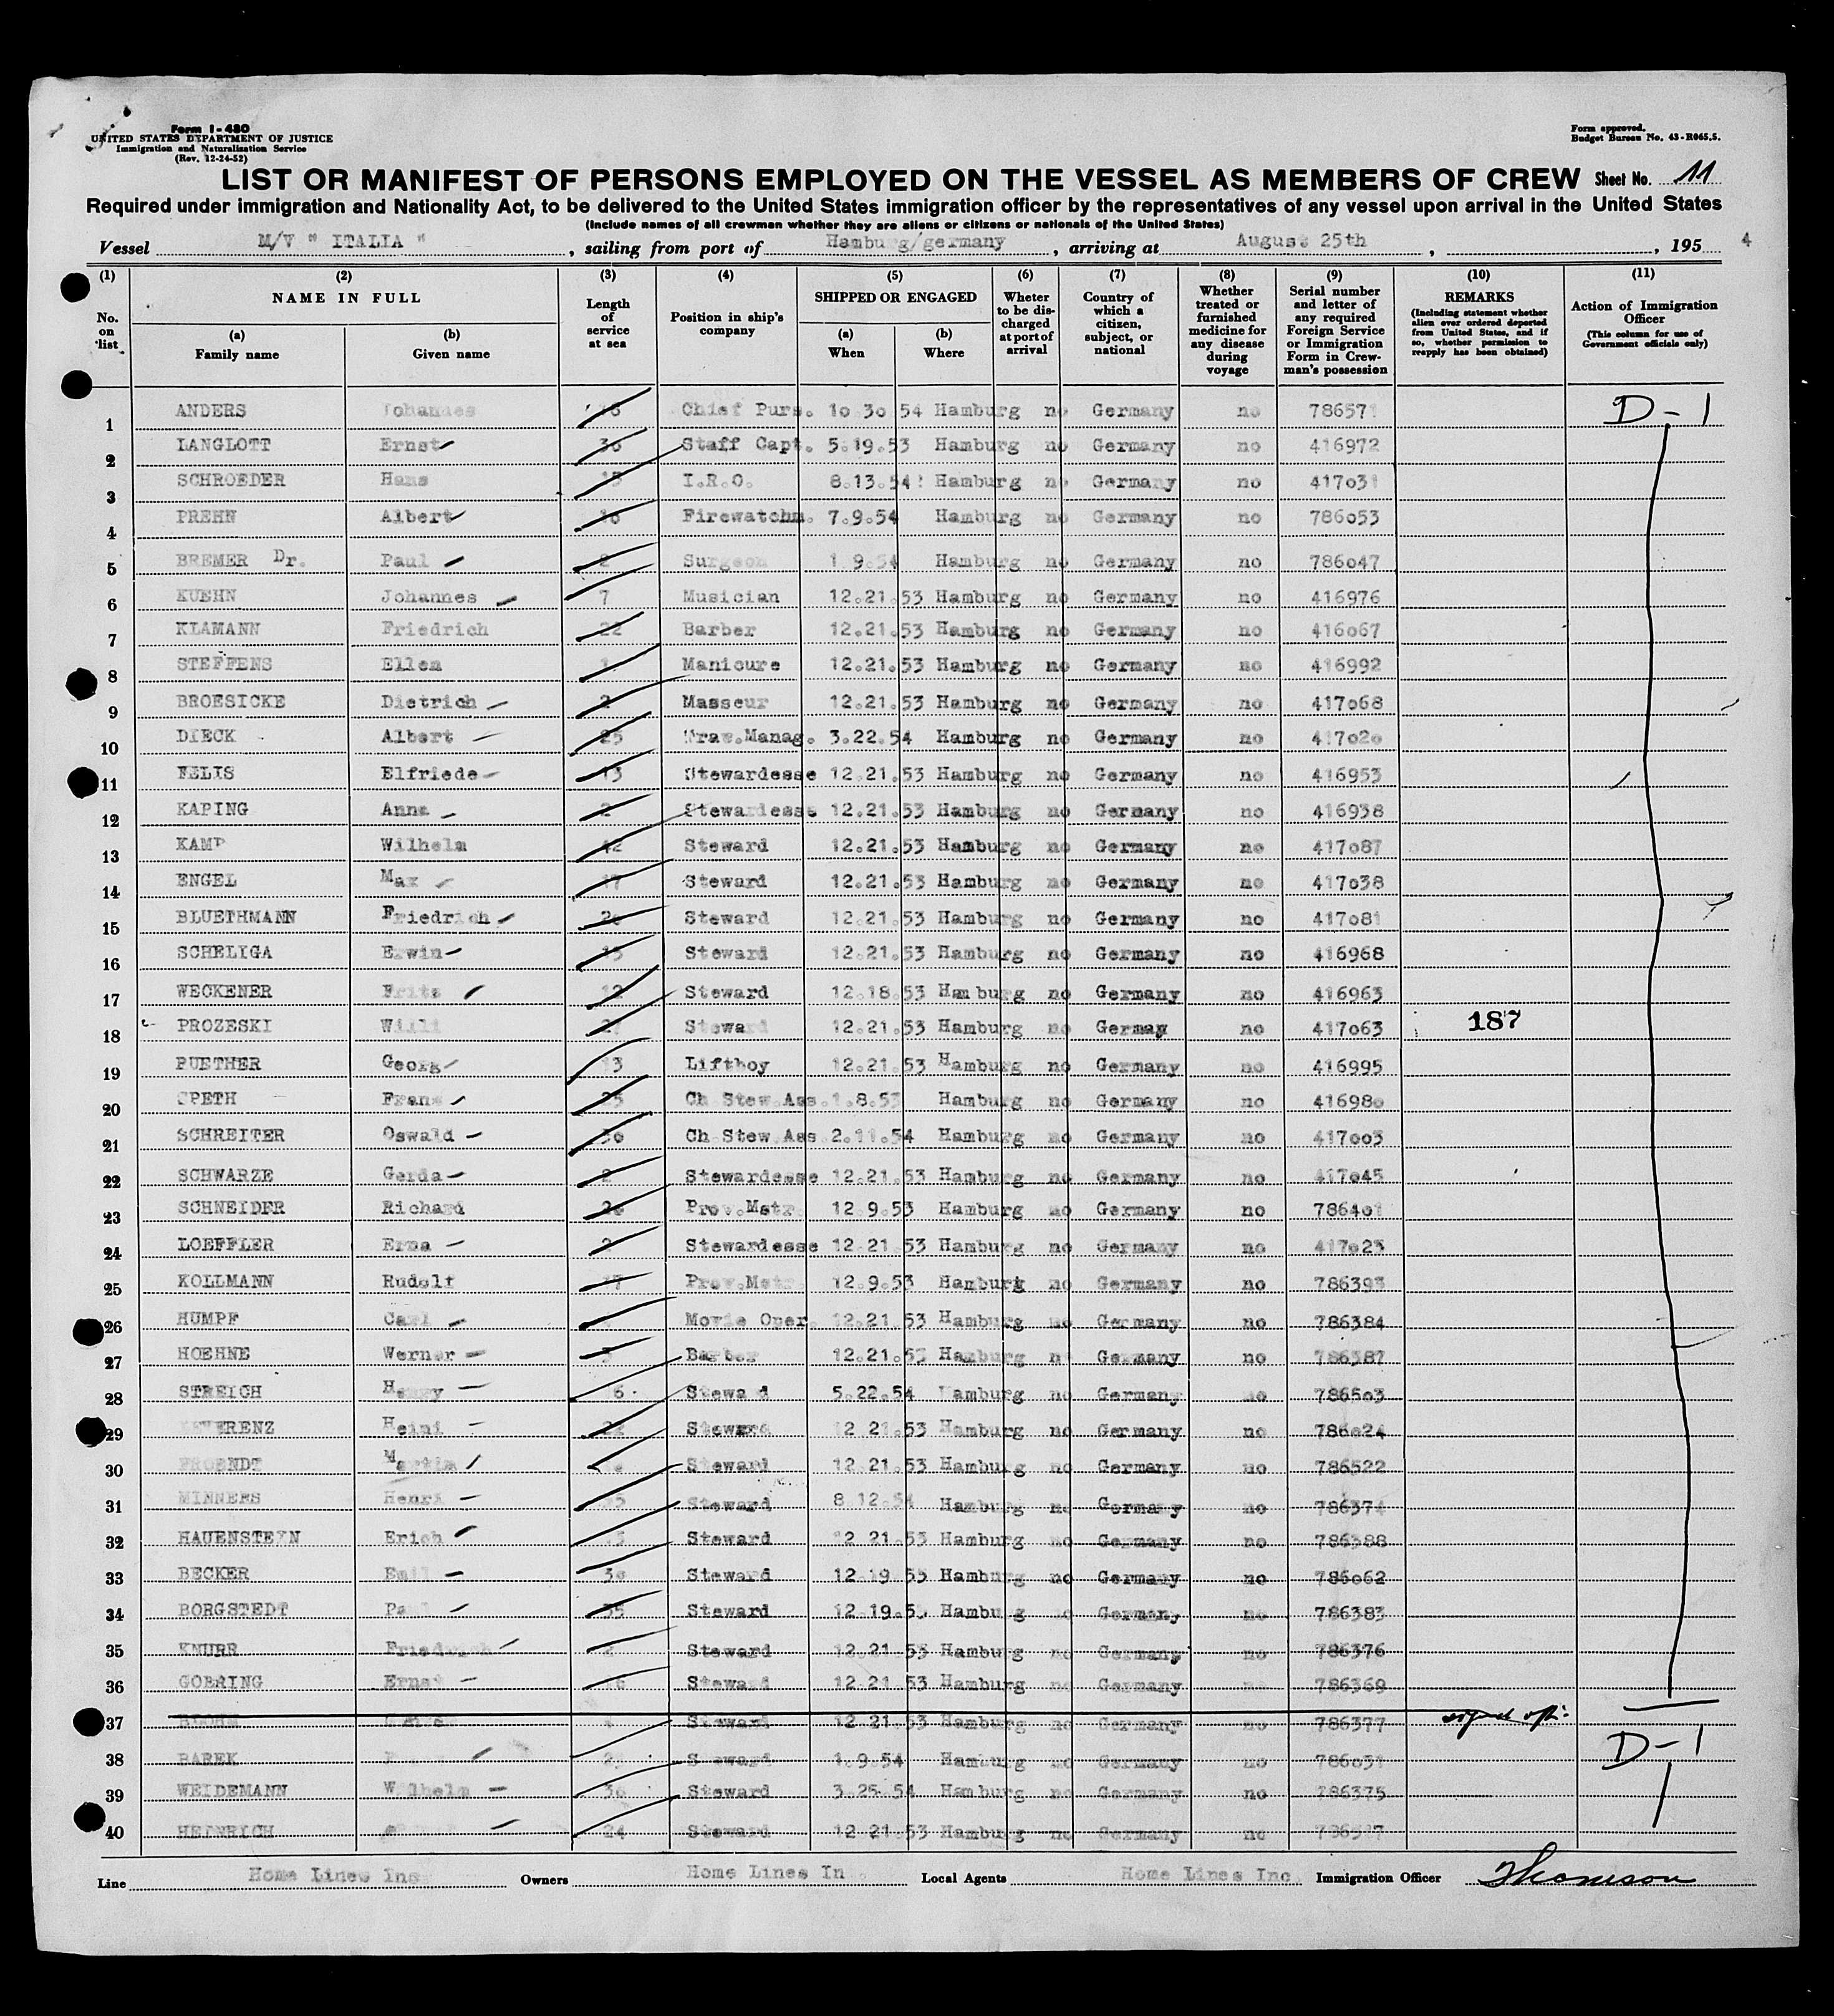 Form I-480
UNITED STATES DEPARTMENT OF JUSTICE
Immigration and Naturalization Service
(Rev. 12-24-52)
Form approved.
Budget Bureau No. 43-R065.5.
LIST OR MANIFEST OF PERSONS EMPLOYED ON THE VESSEL AS MEMBERS OF CREW Sheet No. 11
Required under immigration and Nationality Act, to be delivered to the United States immigration officer by the representatives of any vessel upon arrival in the United States
(Include names of all crewman whether they are aliens or citizens or nationals of the United States)
Vessel M/V " ITALIA " , sailing from port of Hamburg/germany , arriving at August 25th , , 195 4
(1) (2) (3) (4) (5) (6) (7) (8) (9) (10) (11)
No. on list
NAME IN FULL
(a) Family name
(b) Given name
Length of service at sea
Position in ship's company
SHIPPED OR ENGAGED
(a) When
(b) Where
Wheter to be discharged at port of arrival
Country of which a citizen, subject, or national
Whether treated or furnished medicine for any disease during voyage
Serial number and letter of any required Foreign Service or Immigration Form in Crewman's possession
REMARKS
(Including statement whether alien ever ordered deported from United States, and if so, whether permission to reapply has been obtained)
Action of Immigration Officer
(This column for use of Government officials only)
1 ANDERS Johannes Chief Purs. 10 30 54 Hamburg no Germany no 786571 D-1
2 LANGLOTT Ernst 36 Staff Capt. 5.19.53 Hamburg no Germany no 416972
3 SCHROEDER Hans I.R.O. 8.13.54 Hamburg no Germany no 417031
4 PREHN Albert 16 Firewatchm. 7.9.54 Hamburg no Germany no 786053
5 BREMER Dr. Paul 2 Surgeon 1 9.54 Hamburg no Germany no 786047
6 KUEHN Johannes 7 Musician 12.21.53 Hamburg no Germany no 416976
7 KLAMANN Friedrich 22 Barber 12.21.53 Hamburg no Germany no 416067
8 STEFFENS Ellen 1 Manicure 12.21.53 Hamburg no Germany no 416992
9 BROESICKE Dietrich 2 Masseur 12.21.53 Hamburg no Germany no 417068
10 DIECK Albert 25 Trav.Manag. 3.22.54 Hamburg no Germany no 417020
11 FELIS Elfriede 13 Stewardesse 12.21.53 Hamburg no Germany no 416953
12 KAPING Anna 2 Stewardesse 12.21.53 Hamburg no Germany no 416938
13 KAMP Wilhelm 42 Steward 12.21.53 Hamburg no Germany no 417087
14 ENGEL Max 17 Steward 12.21.53 Hamburg no Germany no 417038
15 BLUETHMANN Friedrich Steward 12.21.53 Hamburg no Germany no 417081
16 SCHELIGA Erwin Steward 12.21.53 Hamburg no Germany no 416968
17 WECKENER Fritz 12 Steward 12.18.53 Hamburg no Germany no 416963
18 PROZESKI Willi Steward 12.21.53 Hamburg no Germay no 417063 187
19 PUETHER Georg 13 Liftboy 12.21.53 Hamburg no Germany no 416995
20 SPETH Franz 25 Ch Stew.Ass. 1.8.53 Hamburg no Germany no 416980
21 SCHREITER Oswald Ch Stew Ass 2.11.54 Hamburg no Germany no 417003
22 SCHWARZE Gerda 2 Stewardesse 12.21.53 Hamburg no Germany no 417045
23 SCHNEIDER Richard Prov.Mstr. 12.9.53 Hamburg no Germany no 786401
24 LOEFFLER Erna 2 Stewardesse 12.21.53 Hamburg no Germany no 417023
25 KOLLMANN Rudolf 17 Prov.Mstr. 12.9.53 Hamburg no Germany no 786393
26 HUMPF Carl Movie Oper. 12.21 53 Hamburg no Germany no 786384
27 HOEHNE Werner Barber 12.21.53 Hamburg n Germany no 786387
28 STREICH Henry 6 Steward 5.22.54 Hamburg no Germany no 786503
29 Heini Steward 12 21.53 Hamburg no Germany no 786024
30 FROENDT Martin Steward 12.21.53 Hamburg no Germany no 786522
31 MINNERS Henri Steward 8 12.54 Hamburg no Germany no 786374
32 HAUENSTEIN Erich Steward 12 21.53 Hamburg no Germany no 786388
33 BECKER Emil 30 Steward 12.19 53 Hamburg no Germany no 786062
34 BORGSTEDT Paul 35 Steward 12.19.5 Hamburg no Germany no 786383
35 KNURR Friedrich Steward 12.21.53 Hamburg no Germany no 786376
36 GOERING Ernst Steward 12.21.53 Hamburg no Germany no 786369
37 BLOHM Steward 12 21.53 Hamburg no Germany no 786377 signed off:
38 BAREK Steward 1.9.54 Hamburg no Germany no 786031 D-1
39 WEIDEMANN Wilhelm 30 Steward 3.25.54 Hamburg no Germany no 786375
40 HEINRICH 24 Steward 12 21.53 Hamburg no Germany no
Line Home Lines Inc Owners Home Lines In Local Agents Home Lines Inc Immigration Officer Thomson